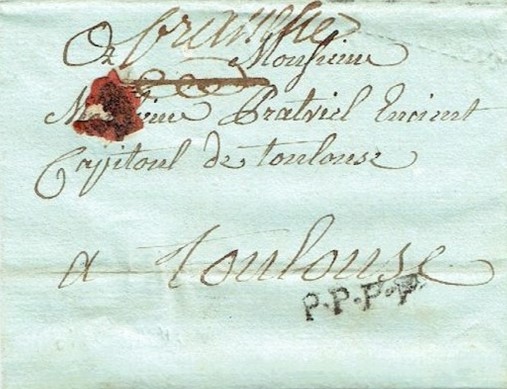 A Monsieur
Monsieur Pratviel Encient
Capitoul de toulouse
a toulouse
P.P.P.P.